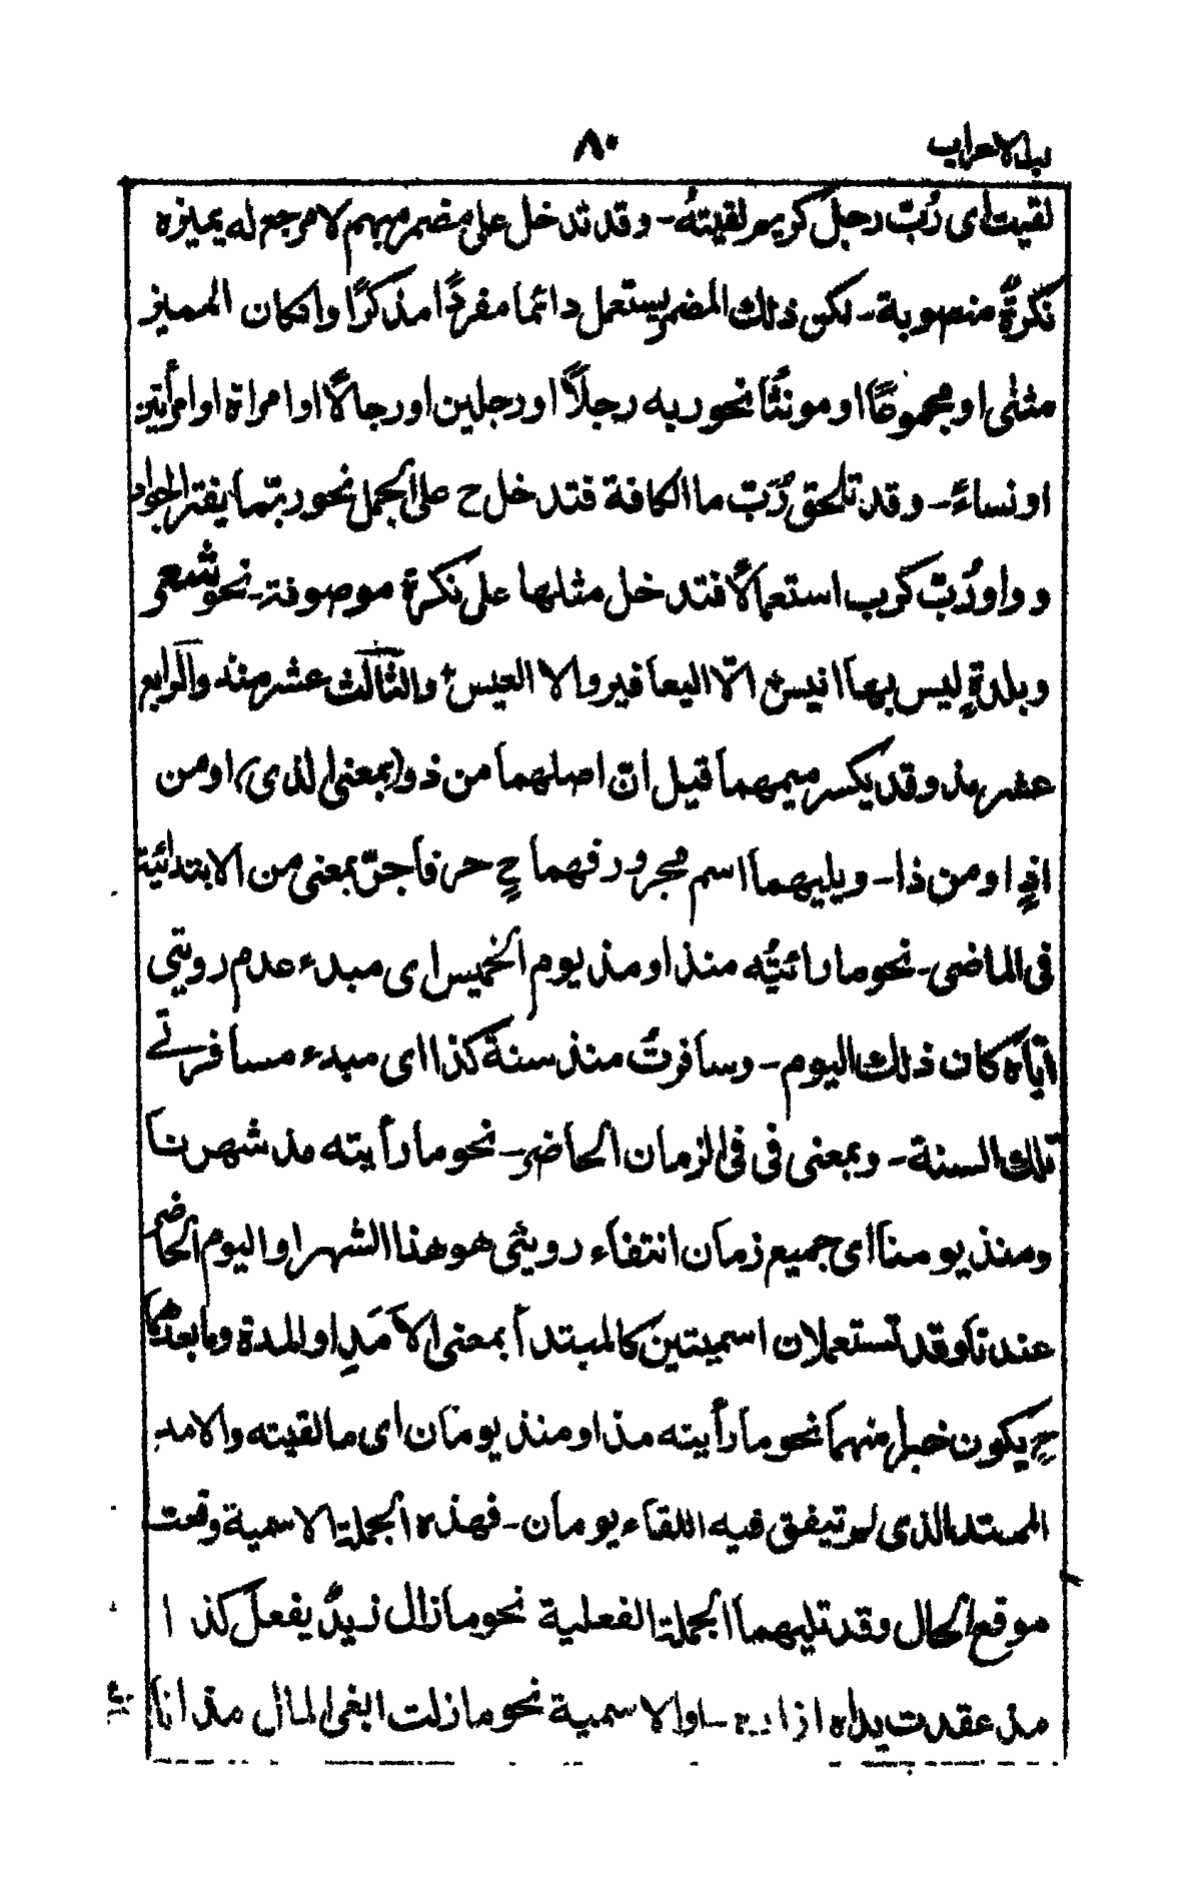 لب الاعراب
٨٠
لقيت اى رُبّ رجل كريم لقيتهُ۔ وقد تدخل على مضمر مبهم لا مرجع له يميزه
نكرةٌ منصوبة۔ لكن ذلك المضمر يستعمل دائما مفردًا مذكرًا وانكان المميز
مثنٰى او مجموعًا او مونثًا نحو ربه رجلاً او رجلين او رجالًا او امراة او امرأتين
او نساءً۔ وقد تلحق رُبّ ما الكافة فتدخل ح على الجمل نحو ربّما يفتر الجواد
و واو رُبّ كرب استعمالًا فتدخل مثلها على نكرة موصوفة۔ نحو شعر
وبلدةٍ ليس بها انيسٌ الّا اليعافير والا العيسٌ والثالث عشر منذ والرابع
عشر مذ وقد يكسر ميمهما قيل انّ اصلهما من ذو (بمعنى الذى) او من
اذٍ او من ذا۔ ويليهما اسم مجرور فهما حٍ حرفا جرّ بمعنى من الابتدائية
فى الماضى۔ نحو ما رائتُه منذ او مذ يوم الخميس اى مبدء عدم رويتى
ايّاه كان ذلك اليوم۔ وسافرتُ منذ سنة كذا اى مبدء مسافرتے
تلك السنة۔ وبمعنى فى فى الزمان الحاضر۔ نحو ما رأيته مذ شهرنا
ومنذ يومنا اى جميع زمان انتفاء رويتى هو هذا الشهر او اليوم الحاضر
عندنا وقد تستعملان اسميتين كالمبتدأ بمعنى الاَمَدِ او المدة وما بعدهما
حٍ يكون خبرا منهما نحو ما رأيته مذ او منذ يومان اى ما لقيته والامد
الممتد الذى لم تيفق فيه اللقاء يومان۔ فهذه الجملة الاسمية وقعت
موقع الحال وقد تليهما الجملة الفعلية نحو ما زال زيدٌ يفعل كذا
مذ عقدت يداه ازاره۔ او الاسمية نحو ما زلت ابغى المال مذ انا